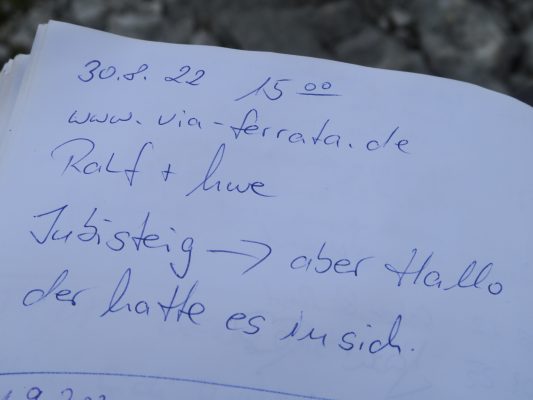 30.8. 22 15 00
www.via-ferrata.de
Ralf + Uwe
Jubisteig → aber Hallo
der hatte es in sich.